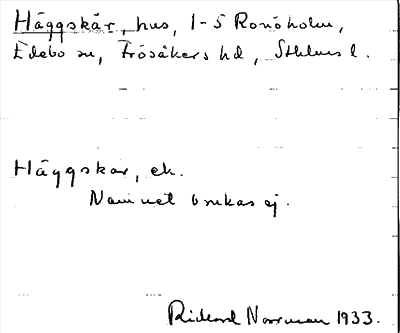 Häggskär, hus, 1-5 Ronöholm,
Edebo sn, Frösåkers hd, Sthlms l.
Häggskär, ek.
Namnet brukas ej.
Rickard Norrman 1933.